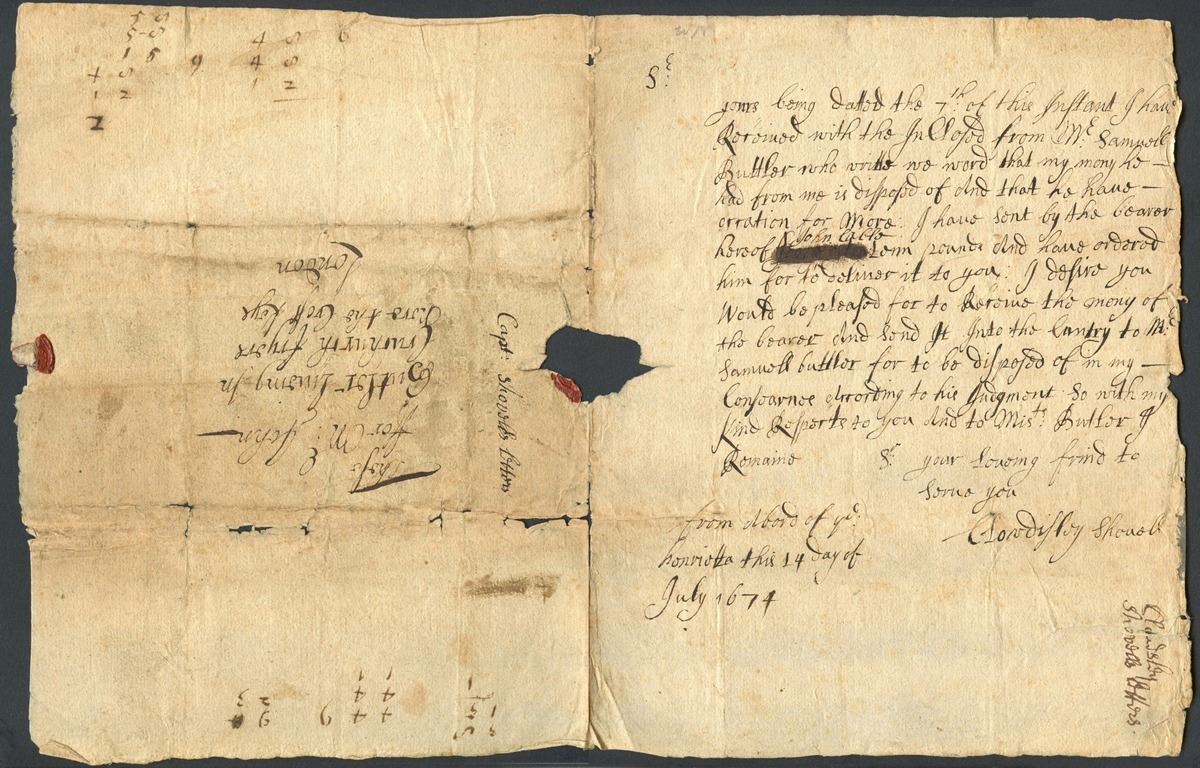 Sr:
yours being dated the 7th of this Instant I have
Received with the InClosed from Mr Samuell
Buttler who writte me word that my mony he
had from me is disposed of And that he have
occation for More: I have sent by the bearer
hereof John Cable tenn pounds And have ordered
him for to deliver it to you: I desire you
Would be pleased for to Receive the mony of
the bearer And send It Into the Cuntry to Mr
Samuell buttler for to be disposed of in my
Consearnes According to his Judgment So with my
kind Respects to you And to Mists: Butler I
Remaine Sr your Loveing frind to
serve you
Clowdisley Shovell
from Abord of ye
henrietta this 14 day of
July 1674
Clowdsly
Shovells Letters.
Capt: Shovells Letters
These
For Mr: John
Buttler Liveing In
Neare the Cross keys
London